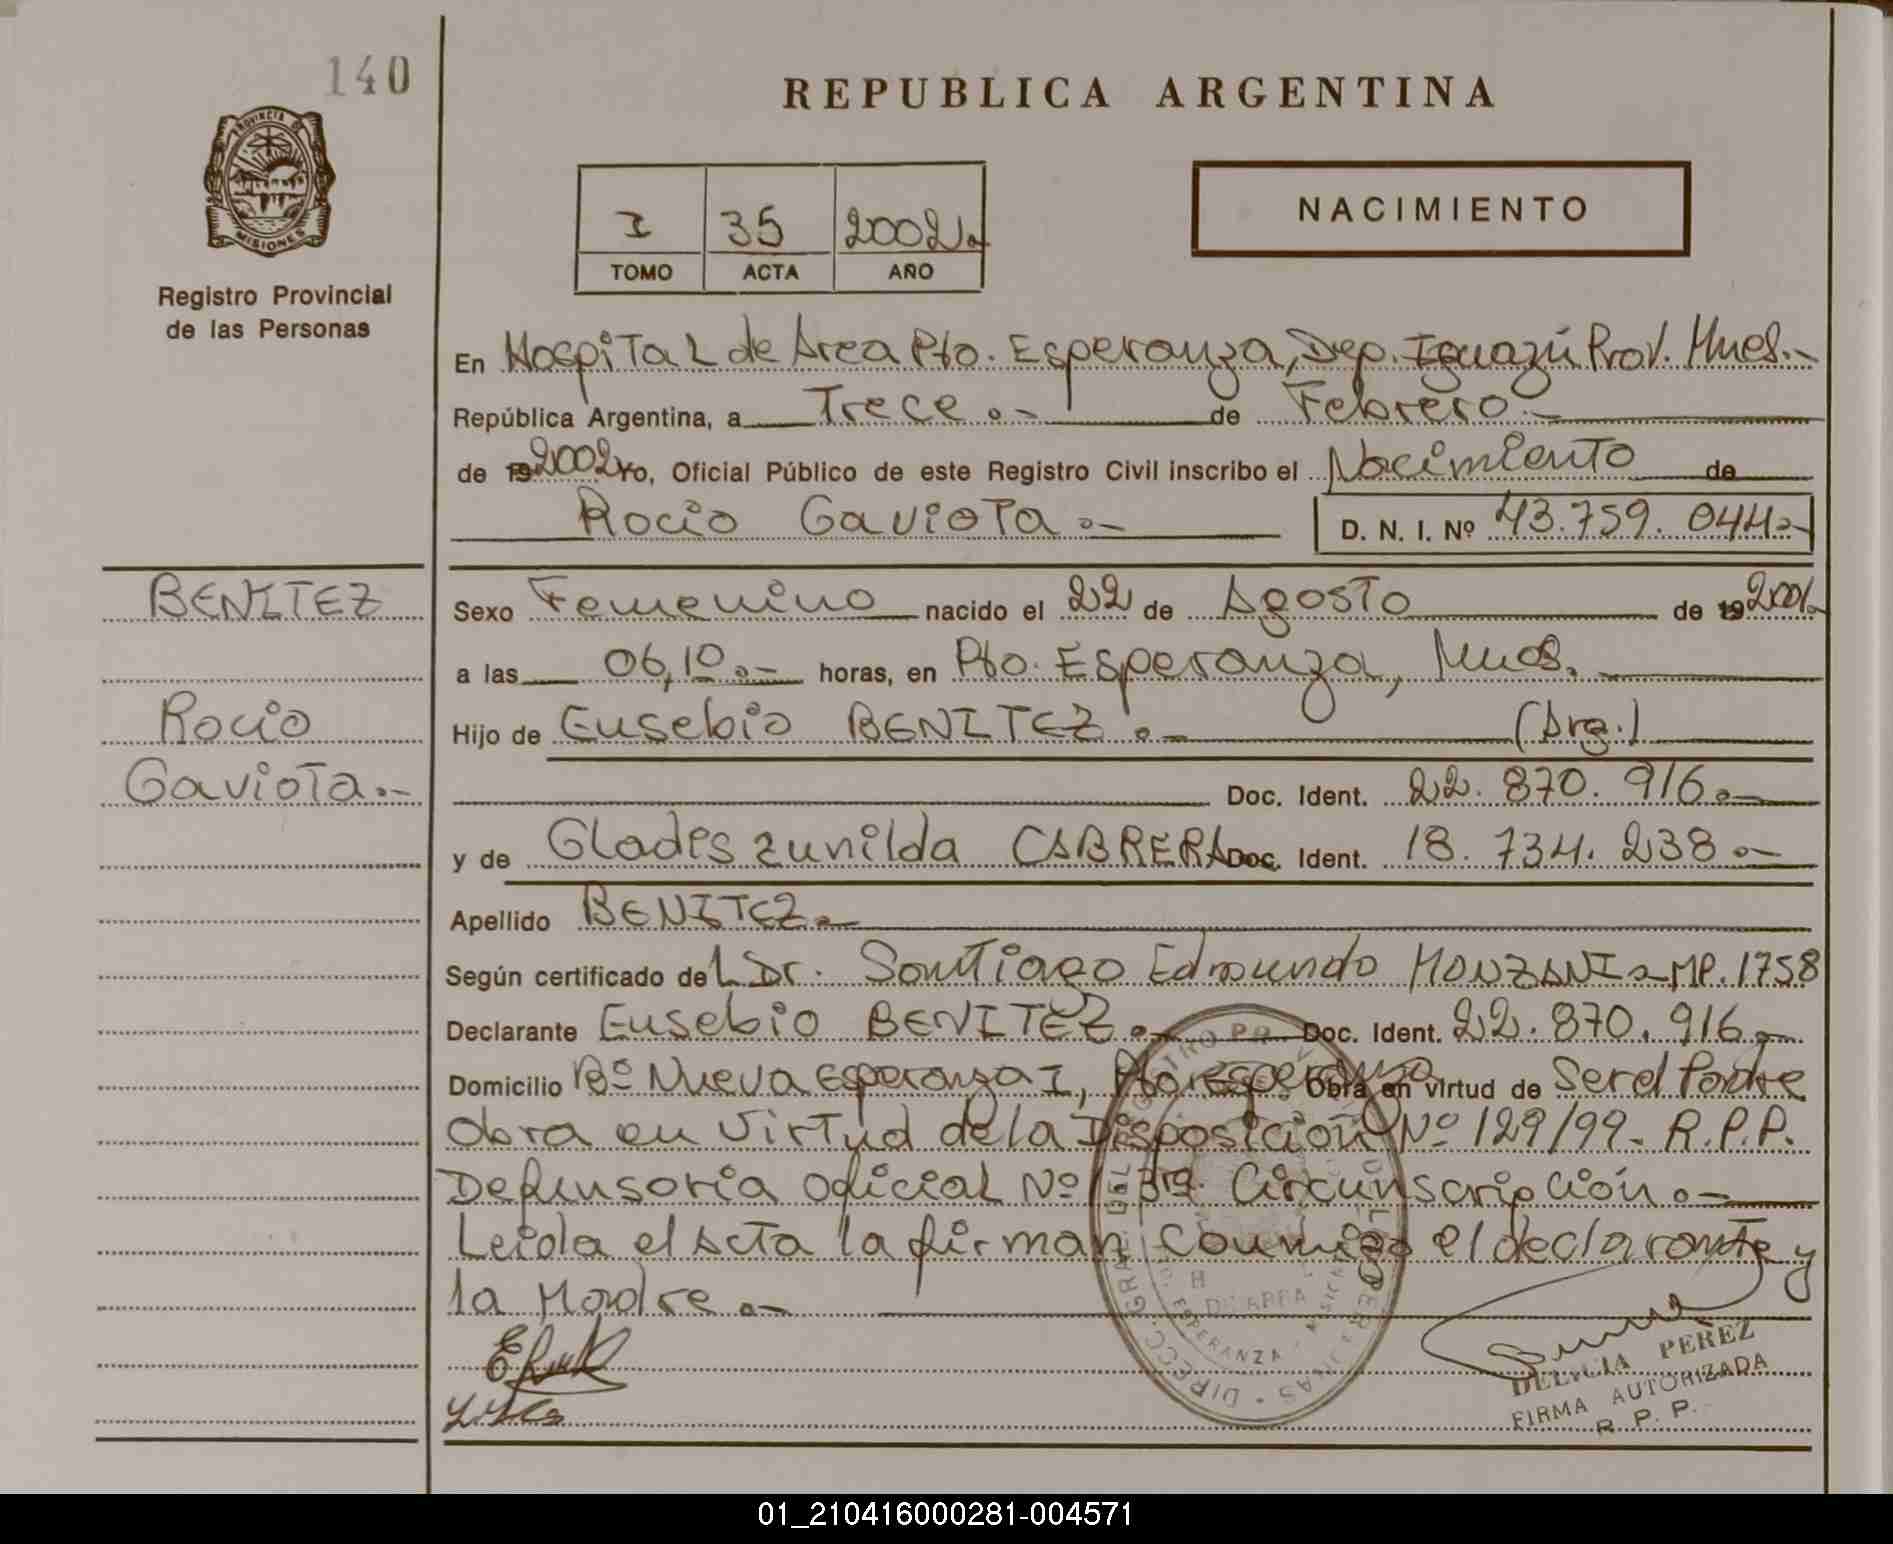 140
REPUBLICA ARGENTINA
PROVINCIA DE
MISIONES
Registro Provincial
de las Personas
I 35 2002.-
TOMO ACTA AÑO
NACIMIENTO
En Hospital de Area Pto. Esperanza, Dep. Iguazú Prov. Mnes.-
República Argentina, a Trece.- de Febrero.-
de 19 2002 Yo, Oficial Público de este Registro Civil inscribo el Nacimiento de
Rocio Gaviota.- D. N. I. Nº 43.759.044.-
BENITEZ
Rocio
Gaviota.-
Sexo Femenino nacido el 22 de Agosto de 19 2001.-
a las 06,10.- horas, en Pto. Esperanza, Mnes.
Hijo de Eusebio BENITEZ.- (Arg.)
Doc. Ident. 22.870.916.-
y de Gladis Zunilda CABRERA Doc. Ident. 18.734.238.-
Apellido BENITEZ.-
Según certificado del Dr. Santiago Edmundo MONZANI.-MP.1758
Declarante Eusebio BENITEZ.- Doc. Ident. 22.870.916.-
Domicilio Bº Nueva Esperanza I, Pto. Esperanza Obra en virtud de Ser el Padre
Obra en Virtud de la Disposición Nº 129/99- R.P.P.
Defensoria Oficial Nº 1 3ra. Circunscripción.-
Leida el Acta la firman conmigo el declarante y
la Madre.-
DELICIA PEREZ
FIRMA AUTORIZADA
R. P. P.
01_210416000281-004571